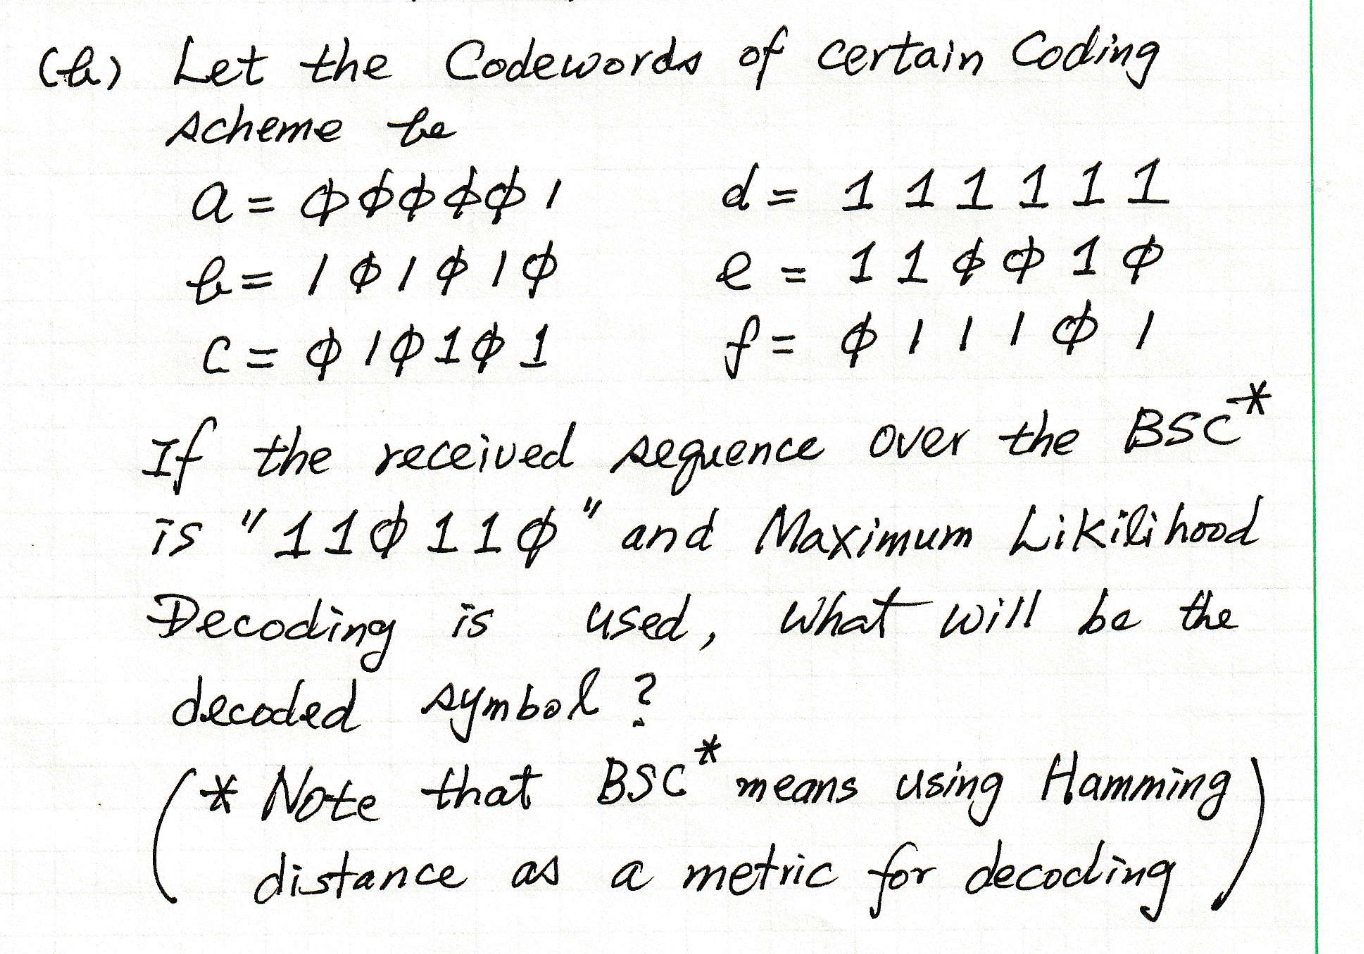 (b) Let the Codewords of certain Coding
scheme be
a = 000001 d = 111111
b = 101010 e = 110010
c = 010101 f = 011101
If the received sequence over the BSC*
is "110110" and Maximum Likilihood
Decoding is used, what will be the
decoded symbol?
(* Note that BSC* means using Hamming
distance as a metric for decoding)